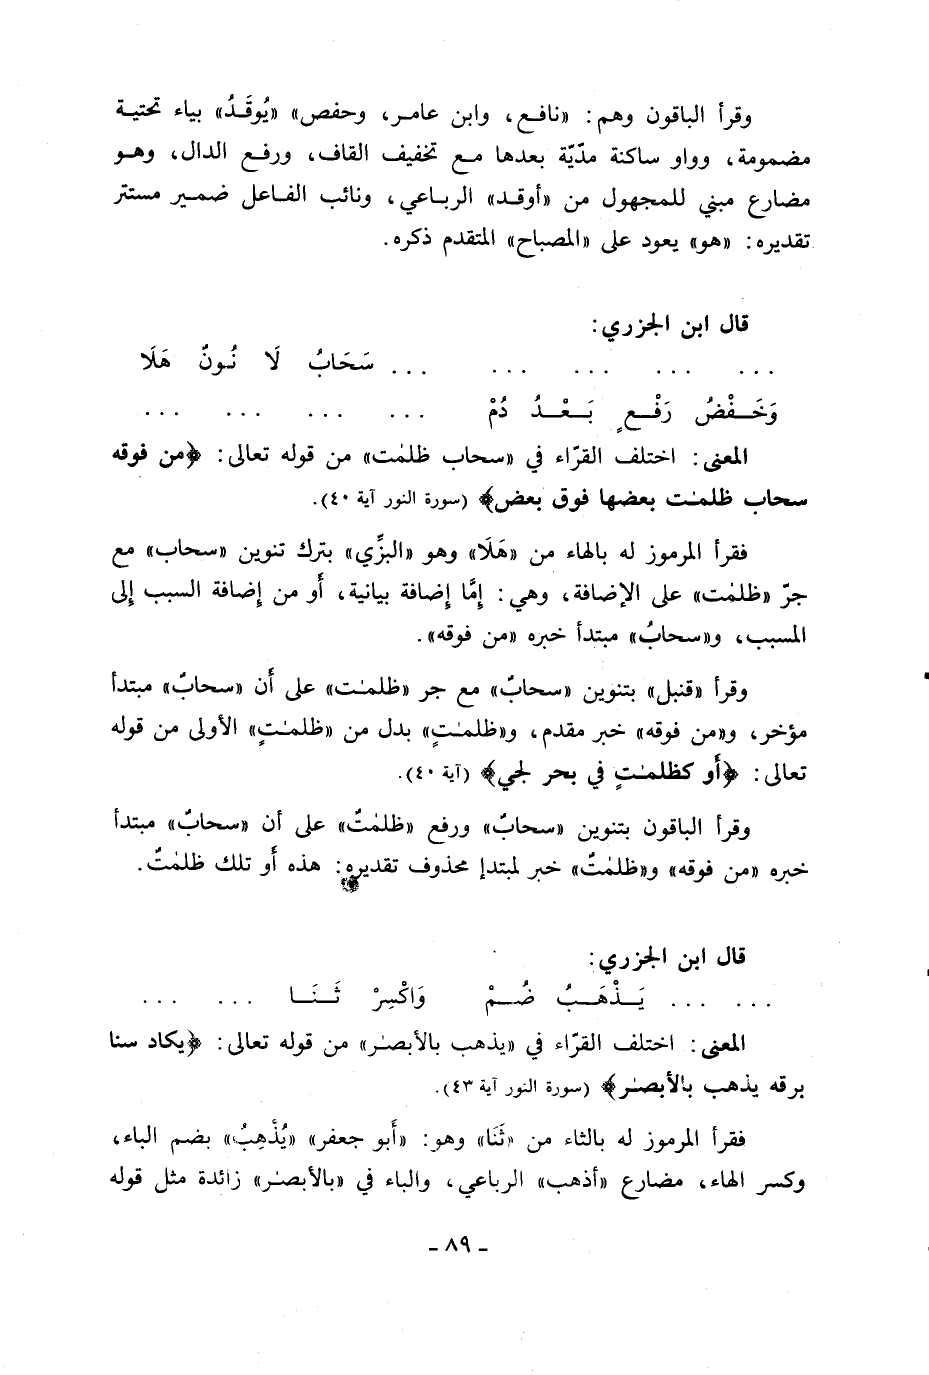 وقرأ الباقون وهم: «نافع، وابن عامر، وحفص» «يُوقَدُ» بياء تحتية
مضمومة، وواو ساكنة مدّيّة بعدها مع تخفيف القاف، ورفع الدال، وهو
مضارع مبني للمجهول من «أوقد» الرباعي، ونائب الفاعل ضمير مستتر
تقديره: «هو» يعود على «المصباح» المتقدم ذكره.
قال ابن الجزري:
... ... ... ... ... سَحَابُ لَا نُونٌ هَلَا
وَخَفْضُ رَفْعٍ بَعْدُ دُمْ ... ... ... ...
المعنى: اختلف القرّاء في «سحاب ظلمٰت» من قوله تعالى: ﴿من فوقه
سحاب ظلمٰت بعضها فوق بعض﴾ (سورة النور آية ٤٠).
فقرأ المرموز له بالهاء من «هَلَا» وهو «البزِّي» بترك تنوين «سحاب» مع
جرّ «ظلمٰت» على الإضافة، وهي: إمَّا إضافة بيانية، أو من إضافة السبب إلى
المسبب، و«سحابُ» مبتدأ خبره «من فوقه».
وقرأ «قنبل» بتنوين «سحابٌ» مع جر «ظلمٰت» على أن «سحابٌ» مبتدأ
مؤخر، و«من فوقه» خبر مقدم، و«ظلمٰتٍ» بدل من «ظلمٰتٍ» الأولى من قوله
تعالى: ﴿أو كظلمٰتٍ في بحر لجي﴾ (آية ٤٠).
وقرأ الباقون بتنوين «سحابٌ» ورفع «ظلمٰتٌ» على أن «سحابٌ» مبتدأ
خبره «من فوقه» و«ظلمٰتٌ» خبر لمبتدإ محذوف تقديره: هذه أو تلك ظلمٰتٌ.
قال ابن الجزري:
... ... ... يَذْهَبُ ضُمْ وَاكْسِرْ ثَنَا ... ...
المعنى: اختلف القرّاء في «يذهب بالأبصٰر» من قوله تعالى: ﴿يكاد سنا
برقه يذهب بالأبصٰر﴾ (سورة النور آية ٤٣).
فقرأ المرموز له بالثاء من «ثَنَا» وهو: «أبو جعفر» «يُذْهِبُ» بضم الياء،
وكسر الهاء، مضارع «أذهب» الرباعي، والباء في «بالأبصٰر» زائدة مثل قوله
ـ ٨٩ ـ